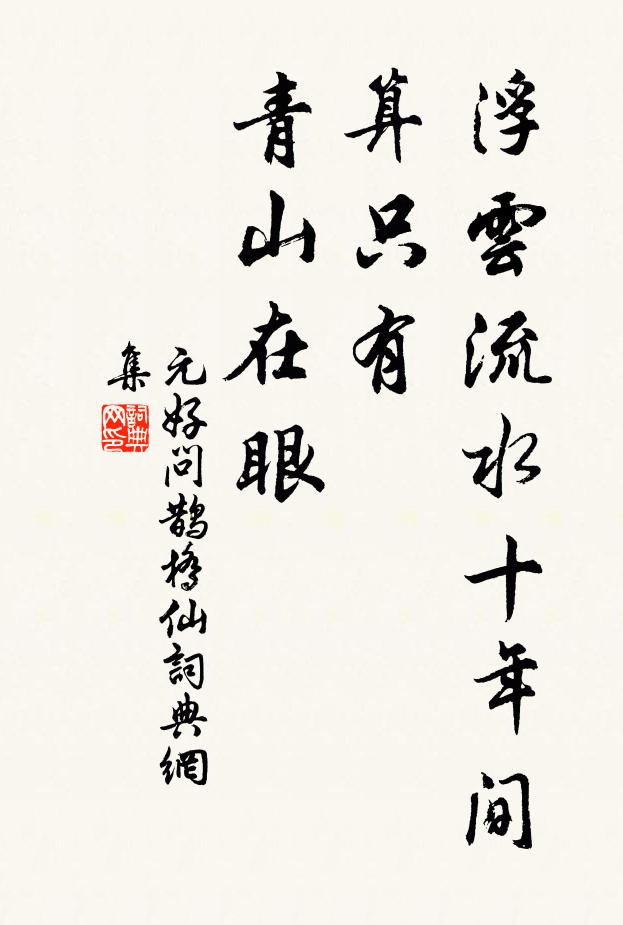 浮雲流水十年间
算只有
青山在眼
元好问鹊橋仙詞典網
集
詞典
网印